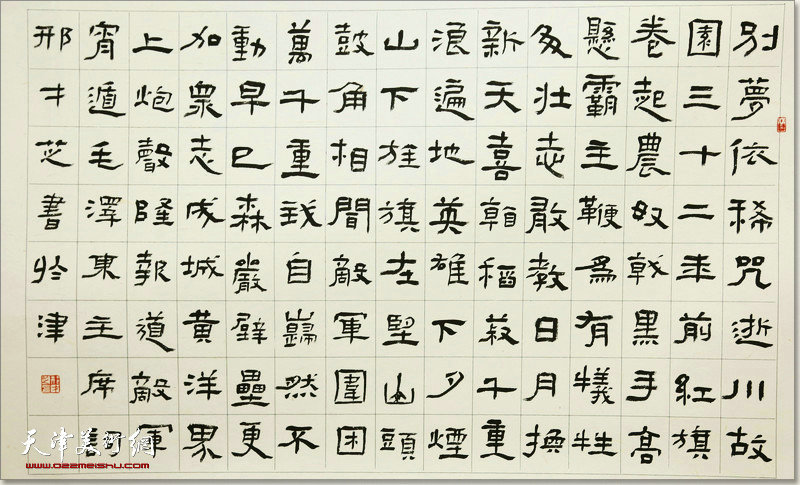 别夢依稀咒逝川故
園三十二年前紅旗
卷起農奴戟黑手高
懸霸主鞭為有犧牲
多壯志敢教日月換
新天喜看稻菽千重
浪遍地英雄下夕煙
山下旌旗在望山頭
鼓角相聞敵軍圍困
萬千重我自巋然不
動早已森嚴壁壘更
加眾志成城黃洋界
上炮聲隆報道敵軍
宵遁毛澤東主席詞
邢才芝書於津
天津美術網
www.022meishu.com